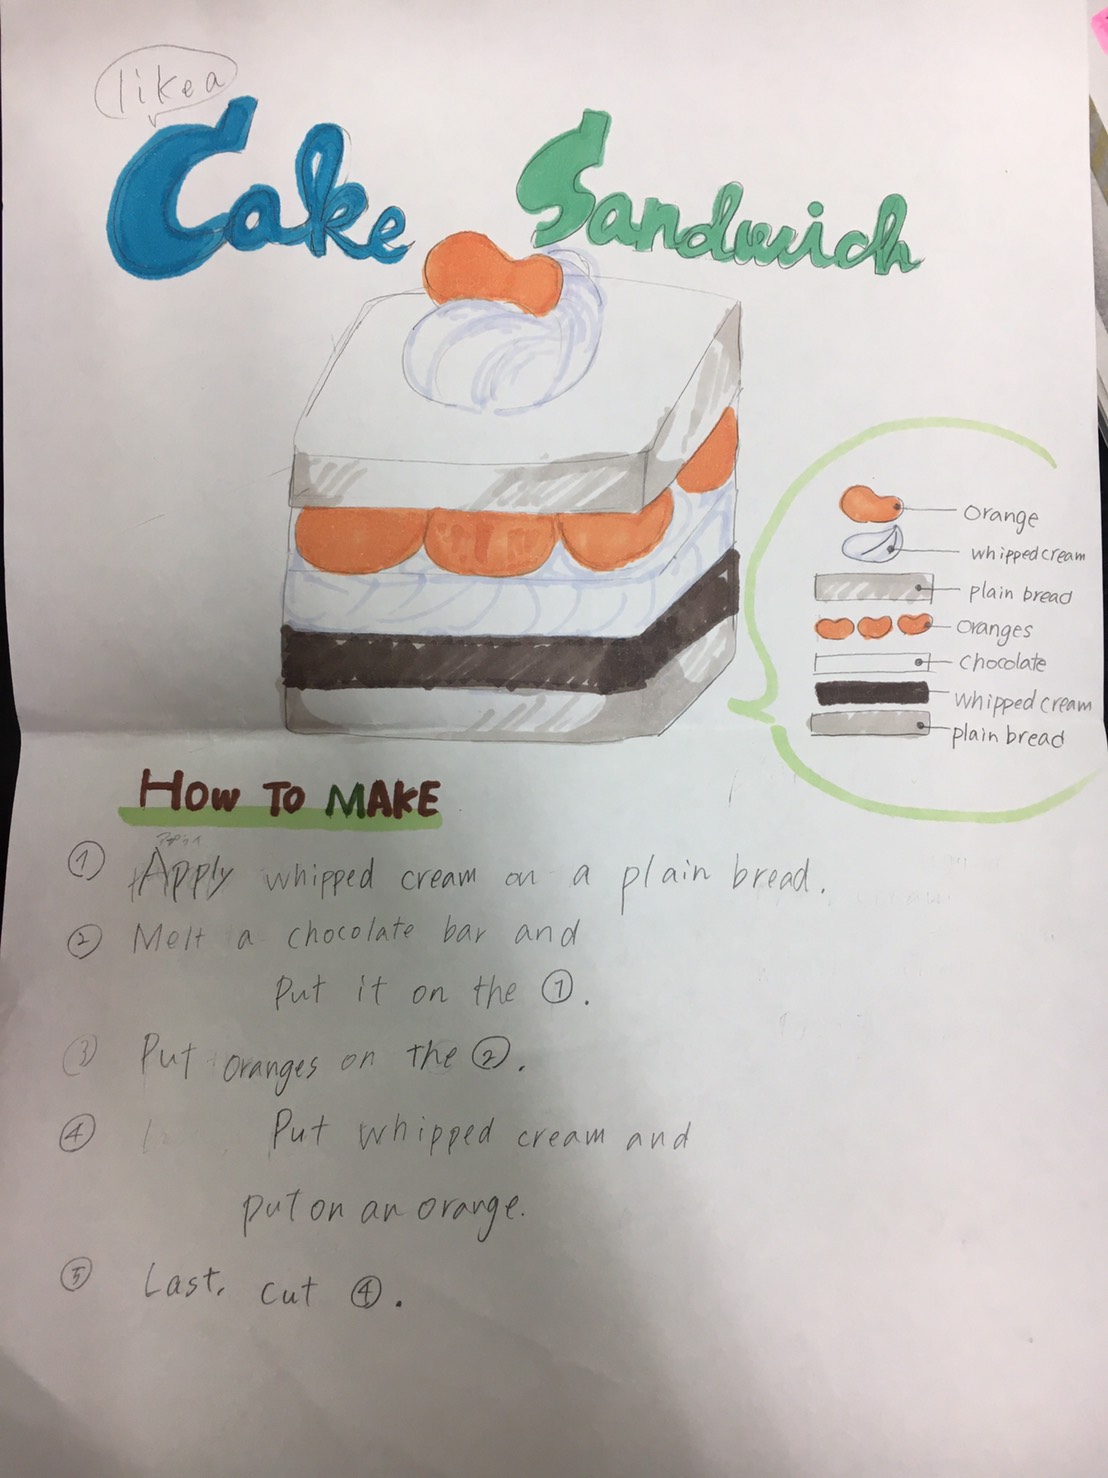 like a
Cake Sandwich
orange
whipped cream
plain bread
oranges
chocolate
whipped cream
plain bread
HOW TO MAKE
① Apply whipped cream on a plain bread.
② Melt a chocolate bar and
put it on the ①.
③ Put oranges on the ②.
④ Put whipped cream and
put on an orange.
⑤ Last, cut ④.